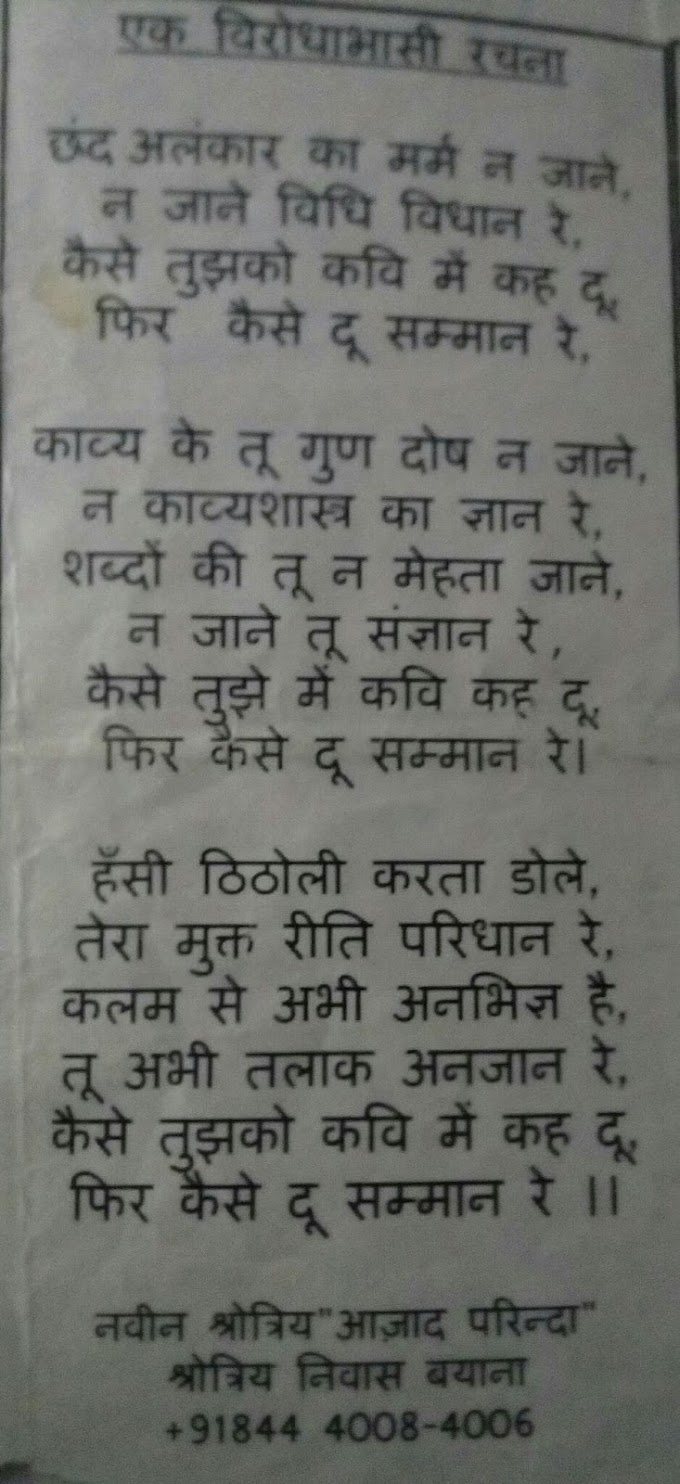 एक विरोधाभासी रचना
छंद अलंकार का मर्म न जाने,
न जाने विधि विधान रे,
कैसे तुझको कवि में कह दू,
फिर कैसे दू सम्मान रे,
काव्य के तू गुण दोष न जाने,
न काव्यशास्त्र का ज्ञान रे,
शब्दों की तू न मेहता जाने,
न जाने तू संज्ञान रे,
कैसे तुझे में कवि कह दू,
फिर कैसे दू सम्मान रे।
हँसी ठिठोली करता डोले,
तेरा मुक्त रीति परिधान रे,
कलम से अभी अनभिज्ञ है,
तू अभी तलाक अनजान रे,
कैसे तुझको कवि में कह दू,
फिर कैसे दू सम्मान रे ।।
नवीन श्रोत्रिय"आज़ाद परिन्दा"
श्रोत्रिय निवास बयाना
+91844 4008-4006